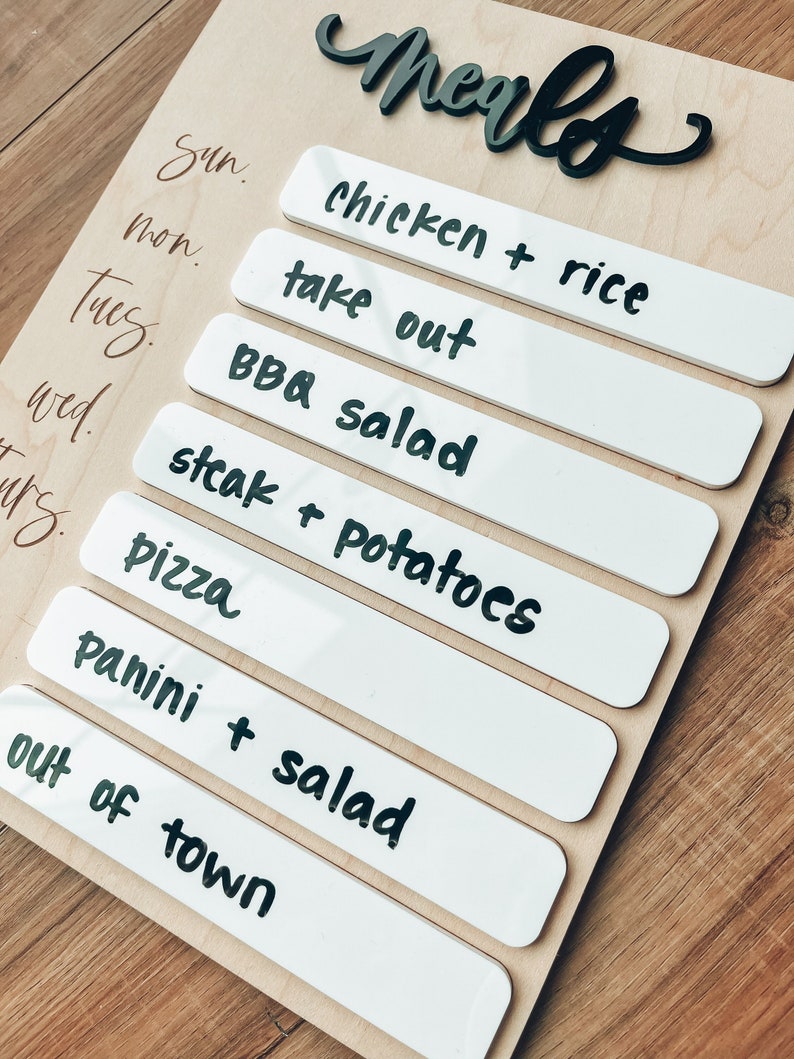 meals
sun. chicken + rice
mon. take out
Tues. BBQ salad
wed. steak + potatoes
Turs. pizza
panini + salad
out of town